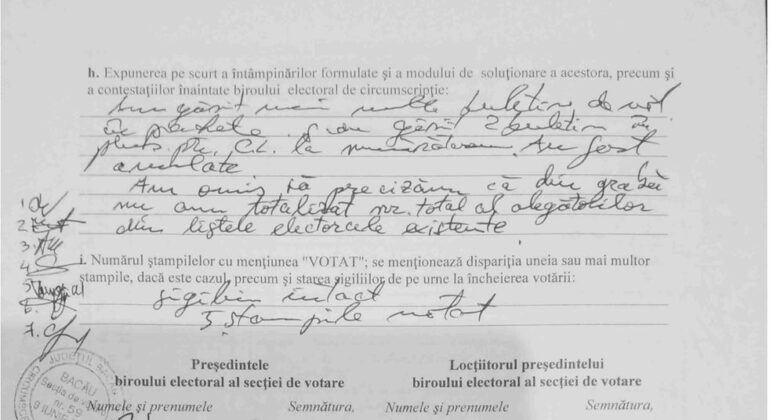 h. Expunerea pe scurt a întâmpinărilor formulate şi a modului de soluţionare a acestora, precum şi
a contestaţiilor înaintate biroului electoral de circumscripţie:
Am găsit mai multe buletine de vot
în pachete găsit 2 buletin în
plus pt. C.L. la Au fost
anulate
Am omis să precizăm că din grabă
nu am totalizat nr. total al alegătorilor
din listele electorale existente
1.
2.
3.
4.
5.
6.
7.
i. Numărul ştampilelor cu menţiunea "VOTAT"; se menţionează dispariţia uneia sau mai multor
ştampile, dacă este cazul, precum şi starea sigiliilor de pe urne la încheierea votării:
intact
5 ştampile votat
Preşedintele
biroului electoral al secţiei de votare
Numele şi prenumele Semnătura,
Locţiitorul preşedintelui
biroului electoral al secţiei de votare
Numele şi prenumele Semnătura,
JUDEŢUL BACĂU
BACĂU
Secţia de
nr. 59
9 IUNIE